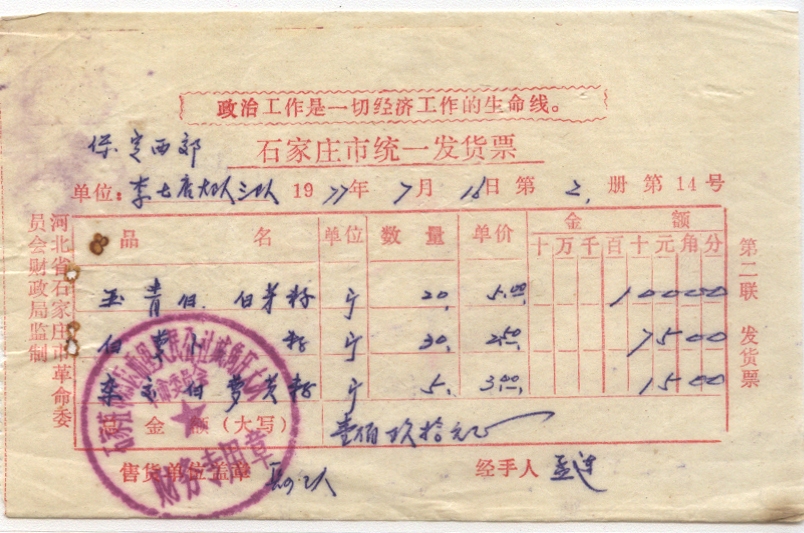 政治工作是一切经济工作的生命线。
保定西郊
石家庄市统一发货票
单位：李七店大队三队 1977年7月16日 第2册 第14号
品名 单位 数量 单价 金额
十万千百十元角分
玉青白 白菜籽 斤 20 5.00 10000
白 籽 斤 30 2.50 7500
白萝卜籽 斤 5 3.00 1500
总金额（大写） 壹佰玖拾元
售货单位盖章 经手人 孟连
财务专用章
河北省石家庄市革命委
员会财政局监制
第二联 发货票